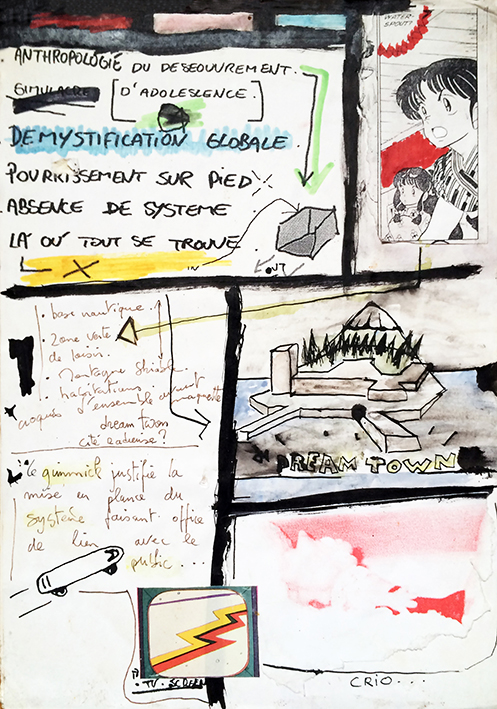 ANTHROPOLOGIE DU DESEOUVREMENT.
SIMULACRE [D'ADOLESCENCE.]
DEMYSTIFICATION GLOBALE.
POURRISSEMENT SUR PIED
ABSENCE DE SYSTEME
LÀ OÙ TOUT SE TROUVE
IN OUT
WATER-
SPOUT!
. base nautique.
. zone verte
de loisir.
. Montagne
. habitations
croquis d'ensemble avant maquette
dream town
cité radieuse?
. Le gimmick justifie la
mise en place du
système faisant office
de lien avec le
public...
DREAM TOWN
. TV. SCREEN
CRIO...